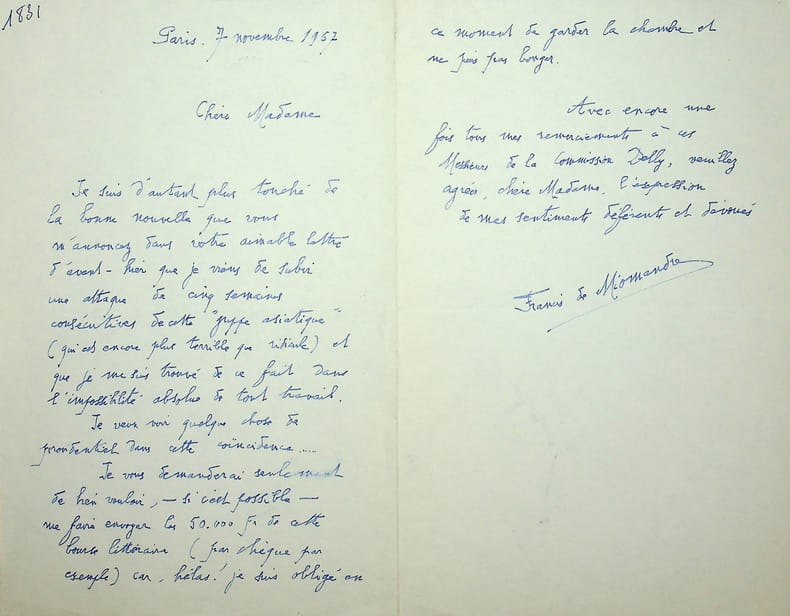 1831
Paris. 7 novembre 1957
Chère Madame
Je suis d'autant plus touché de
la bonne nouvelle que vous
m'annoncez dans votre aimable lettre
d'avant-hier que je viens de subir
une attaque de cinq semaines
consécutives de cette "grippe asiatique"
(qui est encore plus terrible que ridicule) et
que je me suis trouvé de ce fait dans
l'impossibilité absolue de tout travail.
Je veux voir quelque chose de
providentiel dans cette coïncidence....
Je vous demanderai seulement
de bien vouloir, — si c'est possible —
me faire envoyer les 50.000 Fr de cette
bourse littéraire (par chèque par
exemple) car, hélas! je suis obligé en
ce moment de garder la chambre et
ne puis pas bouger.
Avec encore une
fois tous mes remerciements à ces
Messieurs de la Commission Delly, veuillez
agréer, chère Madame, l'expression
de mes sentiments déférents et dévoués
Francis de Miomandre